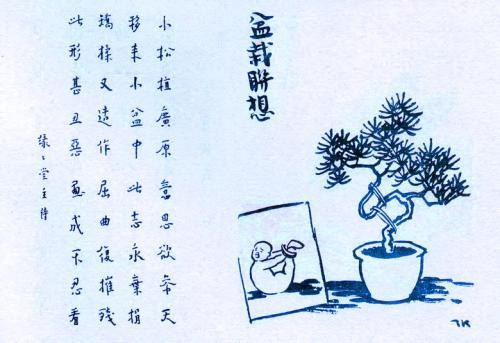 盆栽聯想
小松植廣原 意思欲參天
移来小盆中 此志永棄捐
矯揉又造作 屈曲復摧殘
此形甚丑惡 畫成不忍看
緣〻堂主詩
TK